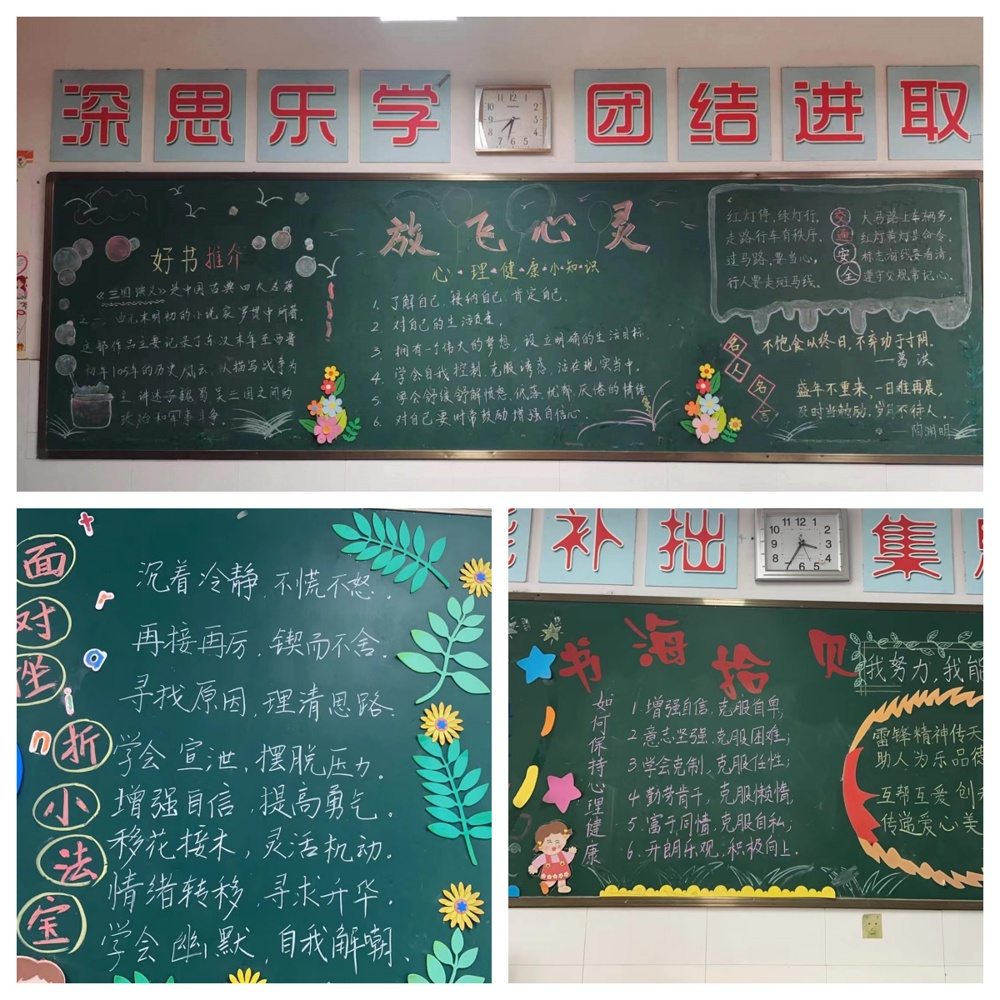 深思乐学
团结进取
好书推介
《三国演义》是中国古典四大名著
之一,由元末明初的小说家罗贯中所著.
这部作品主要记录了东汉末年至西晋
初年105年的历史风云,以描写战争为
主,讲述了魏蜀吴三国之间的
政治和军事斗争.
放飞心灵
心理健康小知识
1. 了解自己,接纳自己,肯定自己.
2. 对自己的生活负责,
3. 拥有一个伟大的梦想,设立明确的生活目标.
4. 学会自我控制,克服诱惑,活在现实当中.
5. 学会舒缓舒解愤怒、低落、忧郁、厌倦的情绪
6. 对自己要时常鼓励,增强自信心.
交通安全
红灯停,绿灯行,
走路行车有秩序.
过马路,要当心,
行人要走斑马线.
大马路上车辆多,
红灯黄灯是命令.
标志渐线要看清,
遵守交规常记心.
名人名言
不饱食以终日,不弃功于寸阴.
——葛洪
盛年不重来,一日难再晨,
及时当勉励,岁月不待人.
——陶渊明
面对挫折小法宝
沉着冷静,不慌不怒.
再接再厉,锲而不舍.
寻找原因,理清思路.
学会宣泄,摆脱压力.
增强自信,提高勇气.
移花接木,灵活机动.
情绪转移,寻求升华.
学会幽默,自我解嘲.
补拙
集
书海拾贝
如何保持心理健康
1.增强自信,克服自卑,
2.意志坚强,克服困难;
3.学会克制,克服任性;
4.勤劳肯干,克服懒惰,
5.富于同情,克服自私;
6.开朗乐观,积极向上.
我努力,我能
雷锋精神传天
助人为乐品德
互帮互爱创
传递爱心美